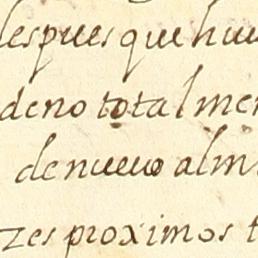 despues que hu
de no total men
de nuevo al m
zes proximos t